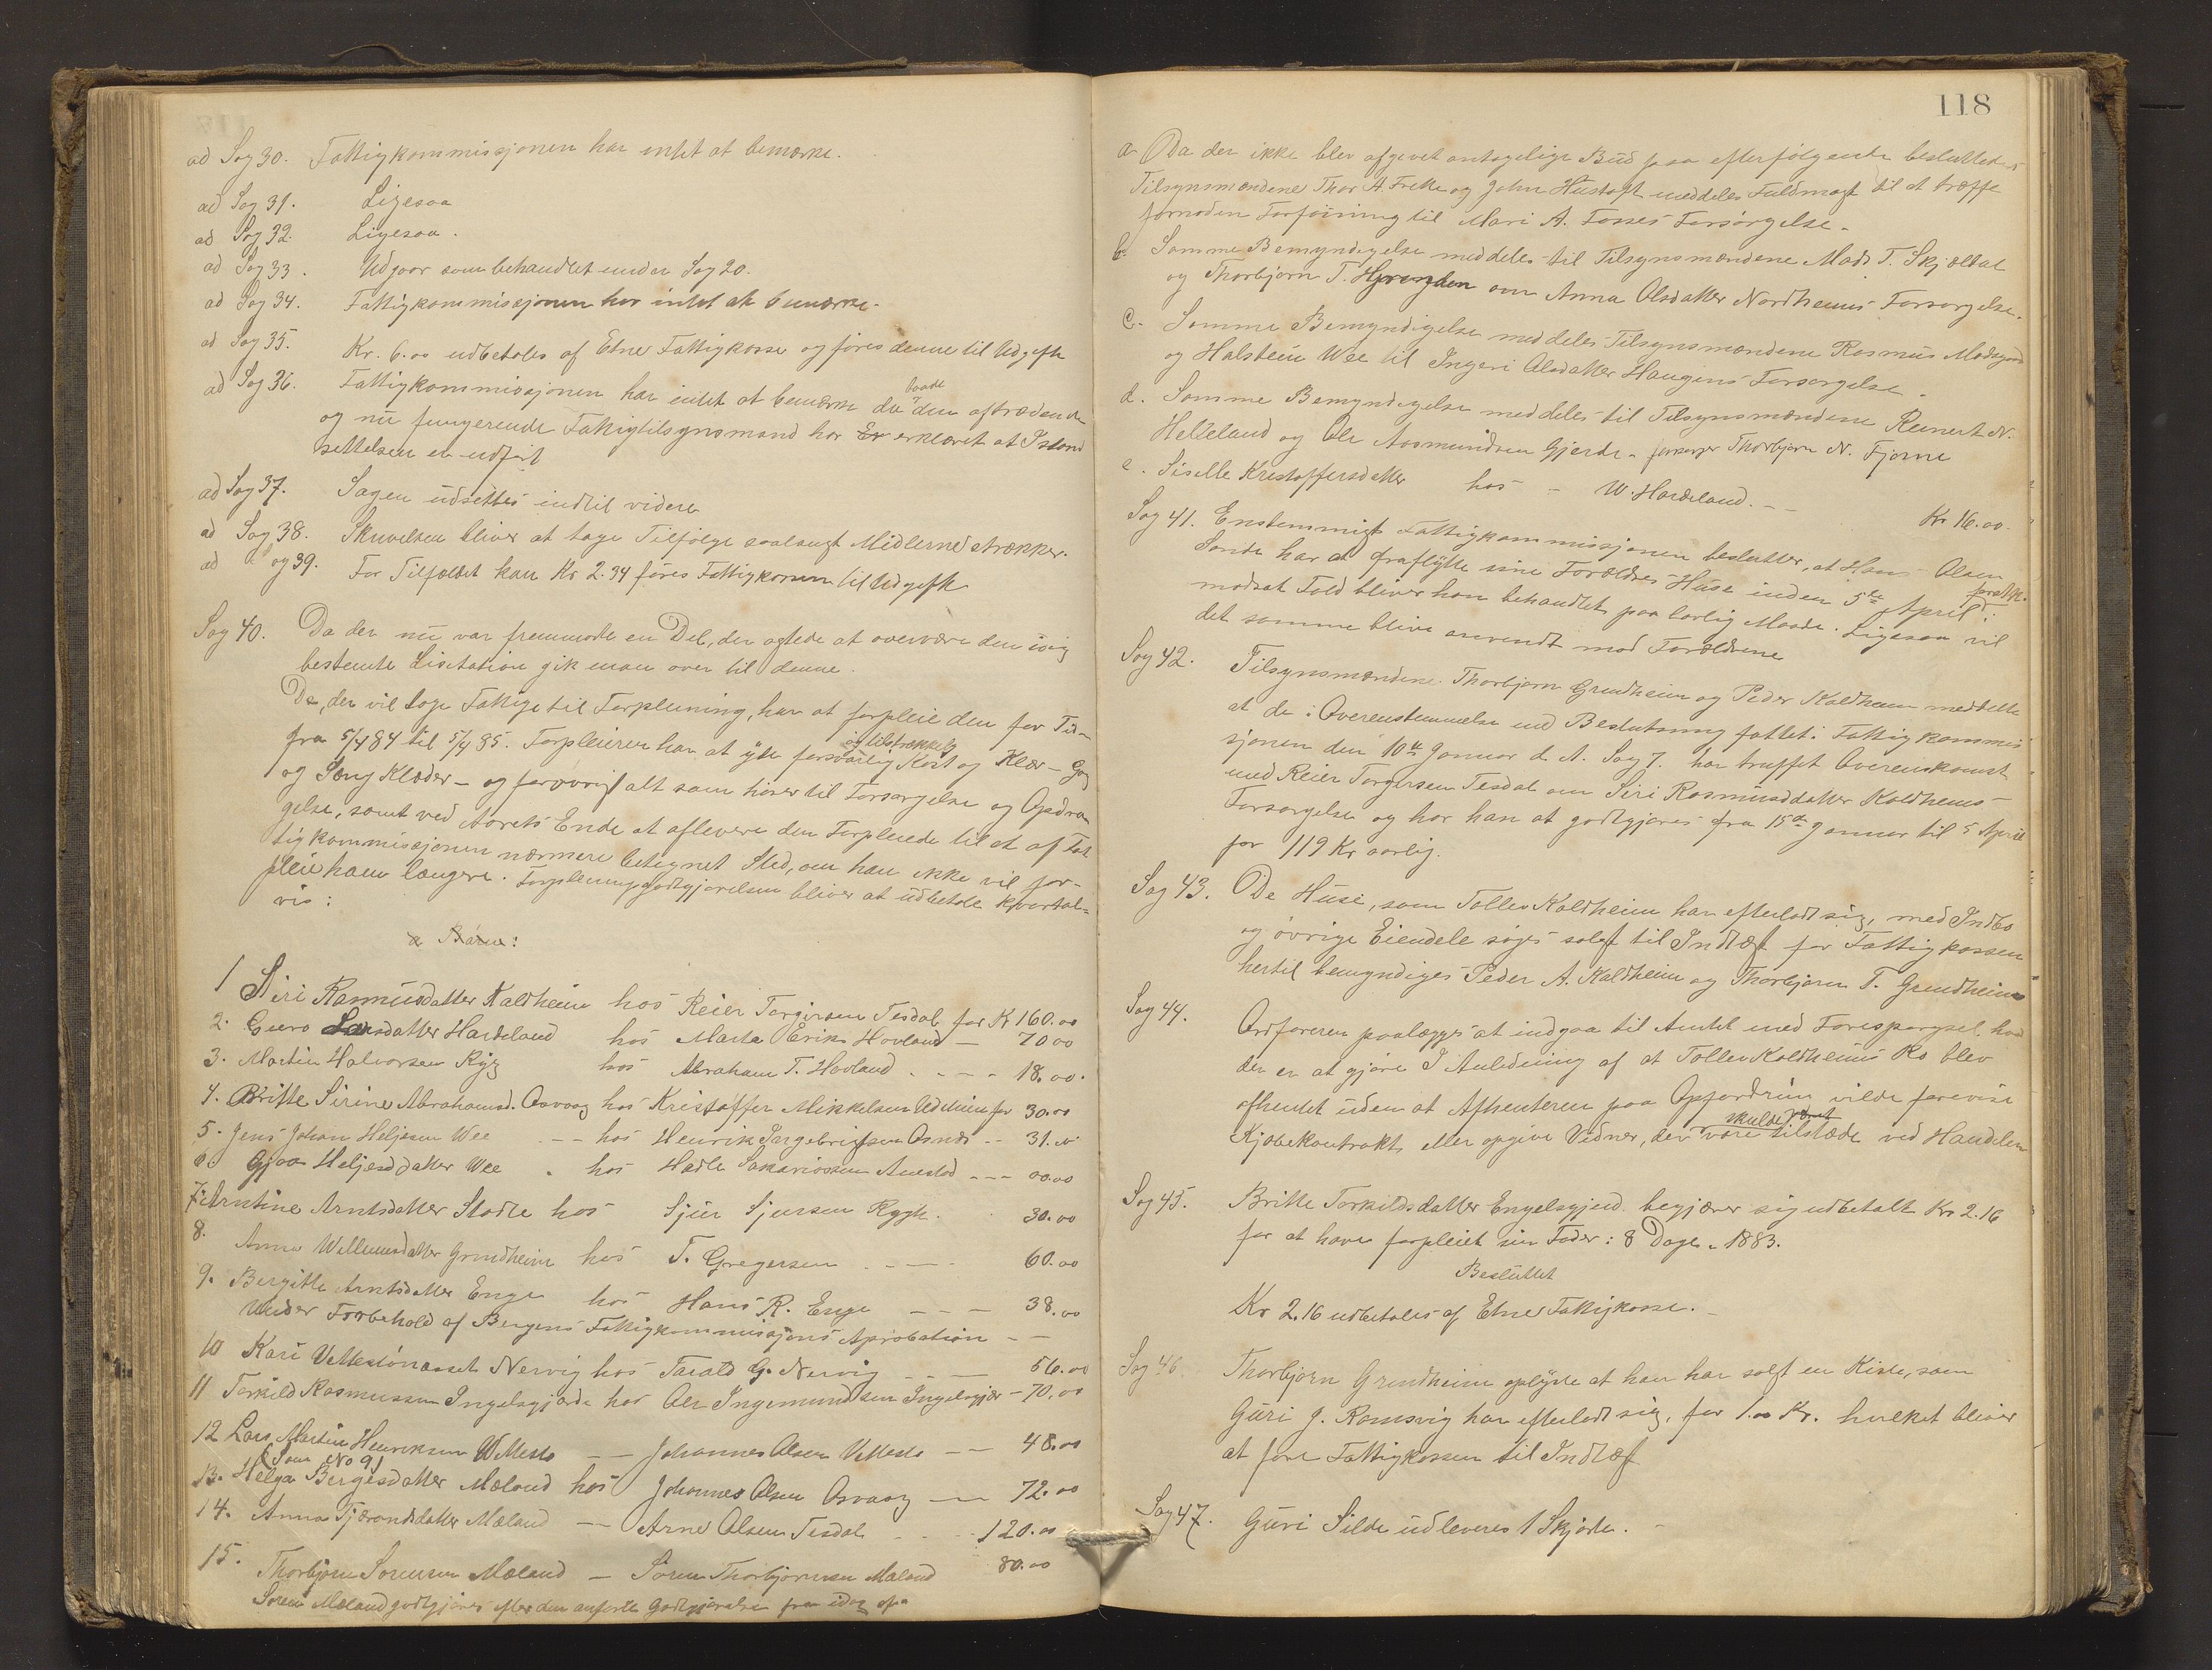 ad Sag 30. Fattigkommissjonen har intet at bemærke.
ad Sag 31. Ligesaa
ad Sag 32. Ligesaa.
ad Sag 33. Udgaar som behandlet under Sag 20.
ad Sag 34. Fattigkommissjonen har intet at bemærke.
ad Sag 35. Kr. 6.00 udbetales af Etne Fattigkasse og føres denne til Udgift
ad Sag 36. Fattigkommissjonen har intet at bemærke da baade den aftrædende
og nu fungerende Fattigtilsynsmand har Er erklæret at Istand
settelsen er udført
ad Sag 37. Sagen udsættes indtil videre
ad Sag 38. Skrivelsen bliver at tage Tilfølge saalangt Midlerne strækker.
ad Sag 39. For Tilfældet kan Kr 2.34 føres Fattigkassen til Udgift
Sag 40. Da der nu var fremmødte en Del, der agtede at overvære den idag
bestemte Lisitation gik man over til denne.
De, der vil tage Fattige til Forpleining, har at forpleie den for Tid-
fra 5/4 84 til 5/4 85. Forpleieren har at yde forsvarlig og tilstrækkelig Kost og Klær - Gang
og Seng Klæder - og forøvrigt alt som hører til Forsørgelse og Opdra
gelse, samt ved Aarets Ende at aflevere den Forpleiede til et af Fat
tigkommissjonen nærmere betegnet Sted, om han ikke vil for-
pleie ham længere. Forpleiningsgodtgjørelsen bliver at udbetale kvartal-
vis:
a Børn:
1 Siri Rasmusdatter Kaldheim hos Reier Torgersen Tesdal for Kr 160.00
2. Guro Larsdatter Hardeland hos Marta Eriks Hovland — 70.00
3. Martin Halvorsen Ryg hos Abraham T. Hovland - - - 18.00.
4. Britte Sirine Abrahamsd. Osvaag hos Kristoffer Mikkelsen for 30.00
5. Jens Johan Heljesen Wee - - hos Henrik Ingebrigtsen Osnes - - 31.00
6. Gjoa Heljesdatter Wee - hos Hadle Sakariassen - - - 00.00
7. Arntine Arntsdatter Stødle hos Sjur Sjursen Rygh. 30.00
8. Anna Willumsdatter Grindheim hos T. Gregersen - - - 60.00
9. Bergitte Arntsdatter Enge hos Hans R. Enge - - - 38.00
Under Forbehold af Bergens Fattigkommissjons Aprobation - -
10 Kari Nervig hos Tarald G. Nervig - - - 56.00
11 Torkild Rasmussen Ingelsgjærde hos Ole Ingemundsen Ingelsgjær - 70.00
12 Lars Martin Henriksen — Johannes Olsen — 48.00
(Som No 9)
13. Helga Bergesdatter Mæland hos Johannes Olsen Osvaag — 72.00
14. Anna Tjærandsdatter Mæland — Arne Olsen Tesdal - - - 120.00
15. Thorbjørn Sørensen Mæland — Søren Thorbjørnsen Mæland 80.00
Søren Mæland godtgjøres efter den anførte Godtgjørelse fra idag af
118
a Da der ikke blev afgivet antagelige Bud paa efterfølgende besluttedes
Tilsynsmændene Thor A. Frette og John Hustoft meddeles Fuldmagt til at træffe
fornøden Forføining til Mari A. Fosses Forsørgelse.
b. Samme Bemyndigelse meddeles til Tilsynsmændene Mads T. Skjældal
og Thorbjørn T. om Anna Olsdatter Nordheims Forsørgelse.
c. Samme Bemyndigelse meddeles Tilsynsmændene Rasmus
og Halstein Wee til Ingeri Olsdatter Haugens Forsørgelse.
d. Samme Bemyndigelse meddeles til Tilsynsmændene Reinert N.
Helleland og Ole Aasmundsen Gjerde - forsørger Thorbjørn N. Fjørne
e. Siselle Kristoffersdatter hos - W. Hardeland. - - Kr 16.00.
Sag 41. Enstemmigt Fattigkommissjonen beslutter, at Hans Olsen
Sande har at fraflytte sine Forældres Huse inden 5te April.
modsat Fald bliver han behandlet paa lovlig Maade. Ligesaa vil
det samme blive anvendt mod Forældrene
Sag 42. Tilsynsmændene Thorbjørn Grindheim og Peder Kaldheim meddelte
at de i Overensstemmelse med Beslutning fattet i Fattigkommis
sjonen den 10de Januar d. A. Sag 7. har truffet Overenskomst
med Reier Torgersen Tesdal om Siri Rasmusdatter Kaldheims
Forsørgelse og har han at godtgjøres fra 15de Januar til 5 April
for 119 Kr aarlig.
Sag 43. De Huse, som Tollev Kaldheim har efterladt sig, med Indbo
og øvrige Eiendele søges solgt til Indtægt for Fattigkassen
hertil bemyndiges Peder A. Kaldheim og Thorbjørn T. Grindheim
Sag 44. Ordføreren paalægges at indgaa til Amtet med Forespørgsel hvad
der er at gjøre i Anledning af at Tollev Kaldheims Ko blev
afhentet uden at Afhenteren paa Opfordring vilde forevise
Kjøbekontrakt eller opgive Vidner, der skulde været tilstæde ved Handelen
Sag 45. Britte Torkildsdatter Engelsgjerd begjærer sig udbetalt Kr 2.16
for at have forpleiet sin Fader i 8 Dage - 1883.
Besluttet
Kr 2.16 udbetales af Etne Fattigkasse.
Sag 46. Thorbjørn Grindheim oplyste at han har solgt en Kiste, som
Guri J. Ramsvig har efterladt sig, for 1.00 Kr. hvilket bliver
at føre Fattigkassen til Indtægt
Sag 47. Guri Silde udleveres 1 Skjørte.